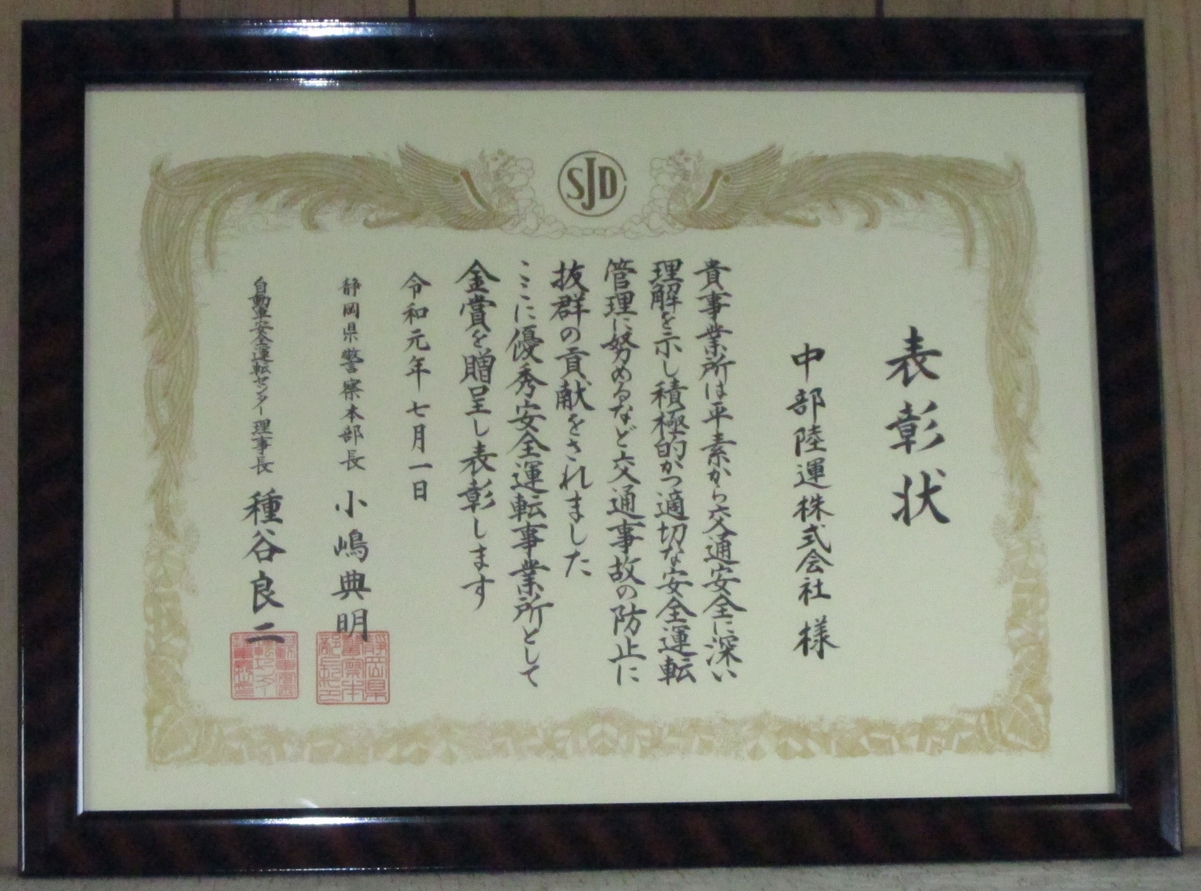 SJD
表彰状
中部陸運株式会社 様
貴事業所は平素から交通安全に深い
理解を示し積極的かつ適切な安全運転
管理に努めるなど交通事故の防止に
抜群の貢献をされました
ここに優秀安全運転事業所として
金賞を贈呈し表彰します
令和元年七月一日
静岡県警察本部長 小嶋典明
自動車安全運転センター理事長 種谷良二